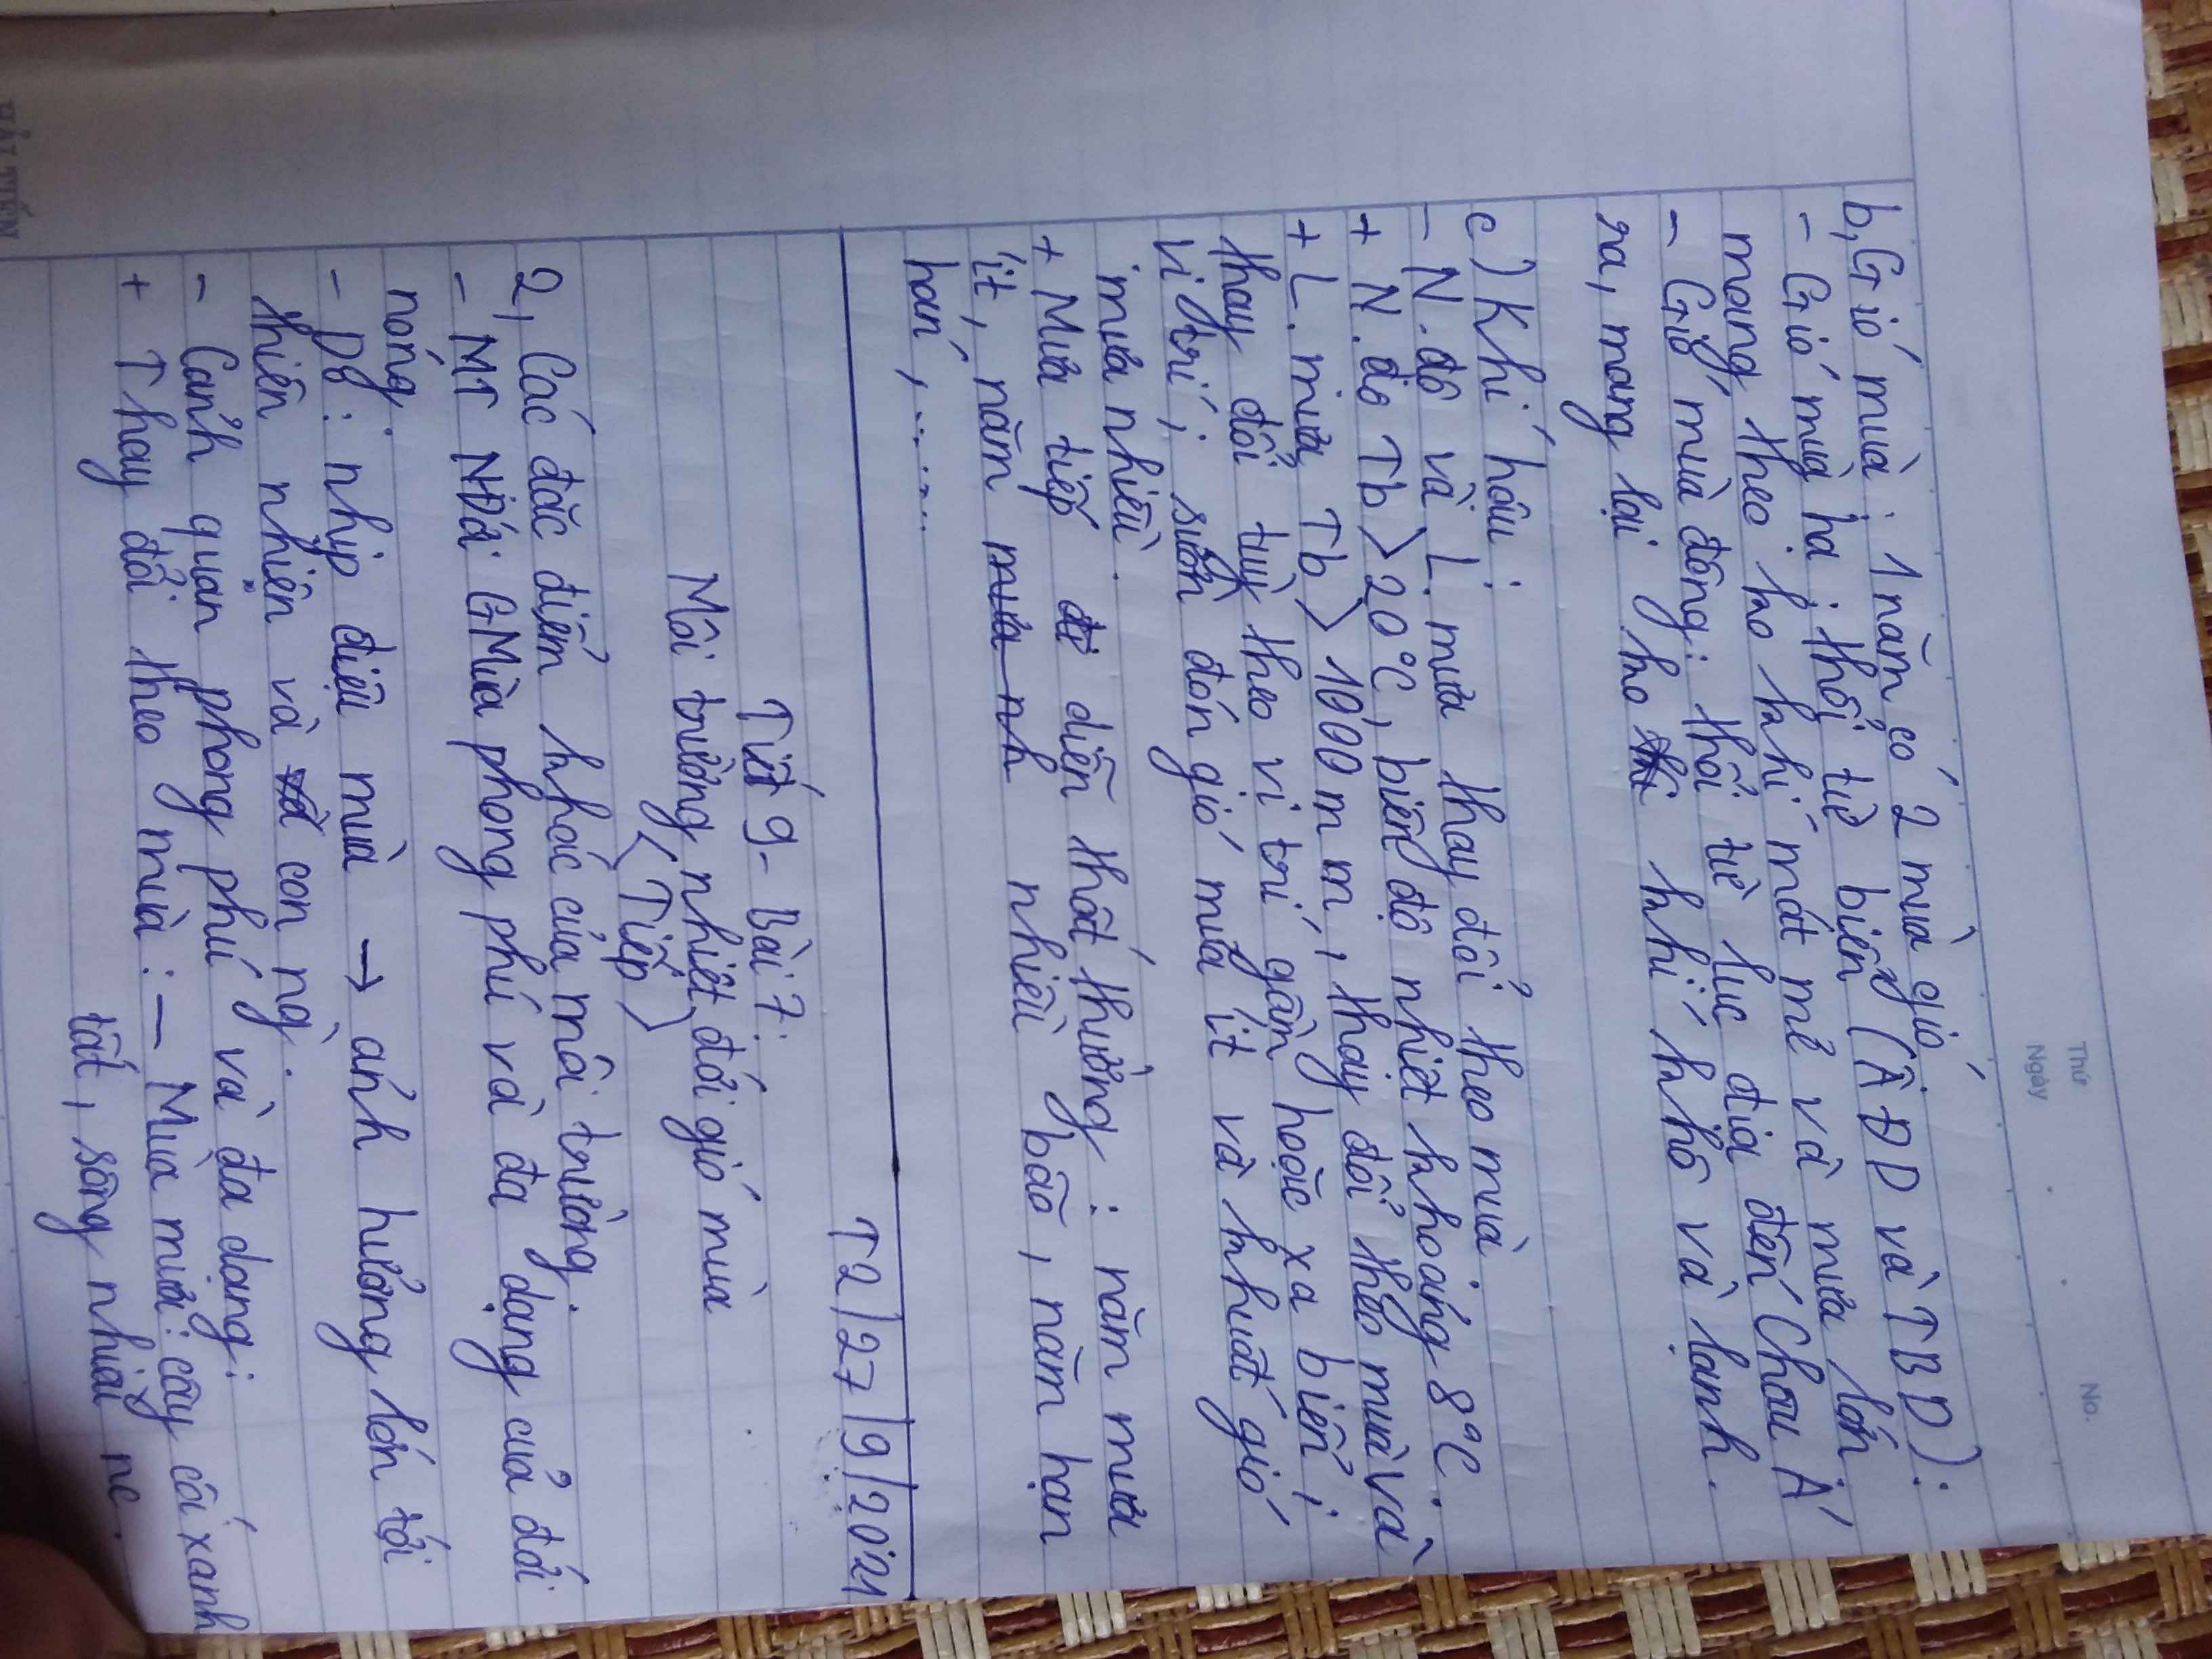 Thứ
Ngày
No.
b, Gió mùa: 1 năm có 2 mùa gió
- Gió mùa hạ: thổi từ biển (ÂĐD và TBD):
mang theo kho khí mát mẻ và mưa lớn
- Gió mùa đông: thổi từ lục địa đến Châu Á
ra, mang lại kho khí khô và lạnh.
c) Khí hậu:
- N.độ và L.mưa thay đổi theo mùa
+ N.độ Tb > 20°C, biên độ nhiệt khoảng 8°C.
+ L.mưa Tb > 1000 mm, thay đổi theo mùa và
thay đổi tuỳ theo vị trí gần hoặc xa biển;
vị trí; sườn đón gió mưa ít và khuất gió
mưa nhiều.
+ Mưa tiếp diễn thất thường: năm mưa
ít, năm mưa nh nhiều bão, năm hạn
hán, ......
T2/27/9/2021
Tiết 9- Bài 7:
Môi trường nhiệt đới gió mùa
<Tiếp>
2, Các đặc điểm khác của môi trường.
- MT NĐới GMùa phong phú và đa dạng của đới
nóng.
- Dg: nhịp điệu mùa → ảnh hưởng lớn tới
thiên nhiên và con ng.
- Cảnh quan phong phú và đa dạng:
+ Thay đổi theo mùa: - Mùa mưa: cây cối xanh
tốt, sông nhiều nc.